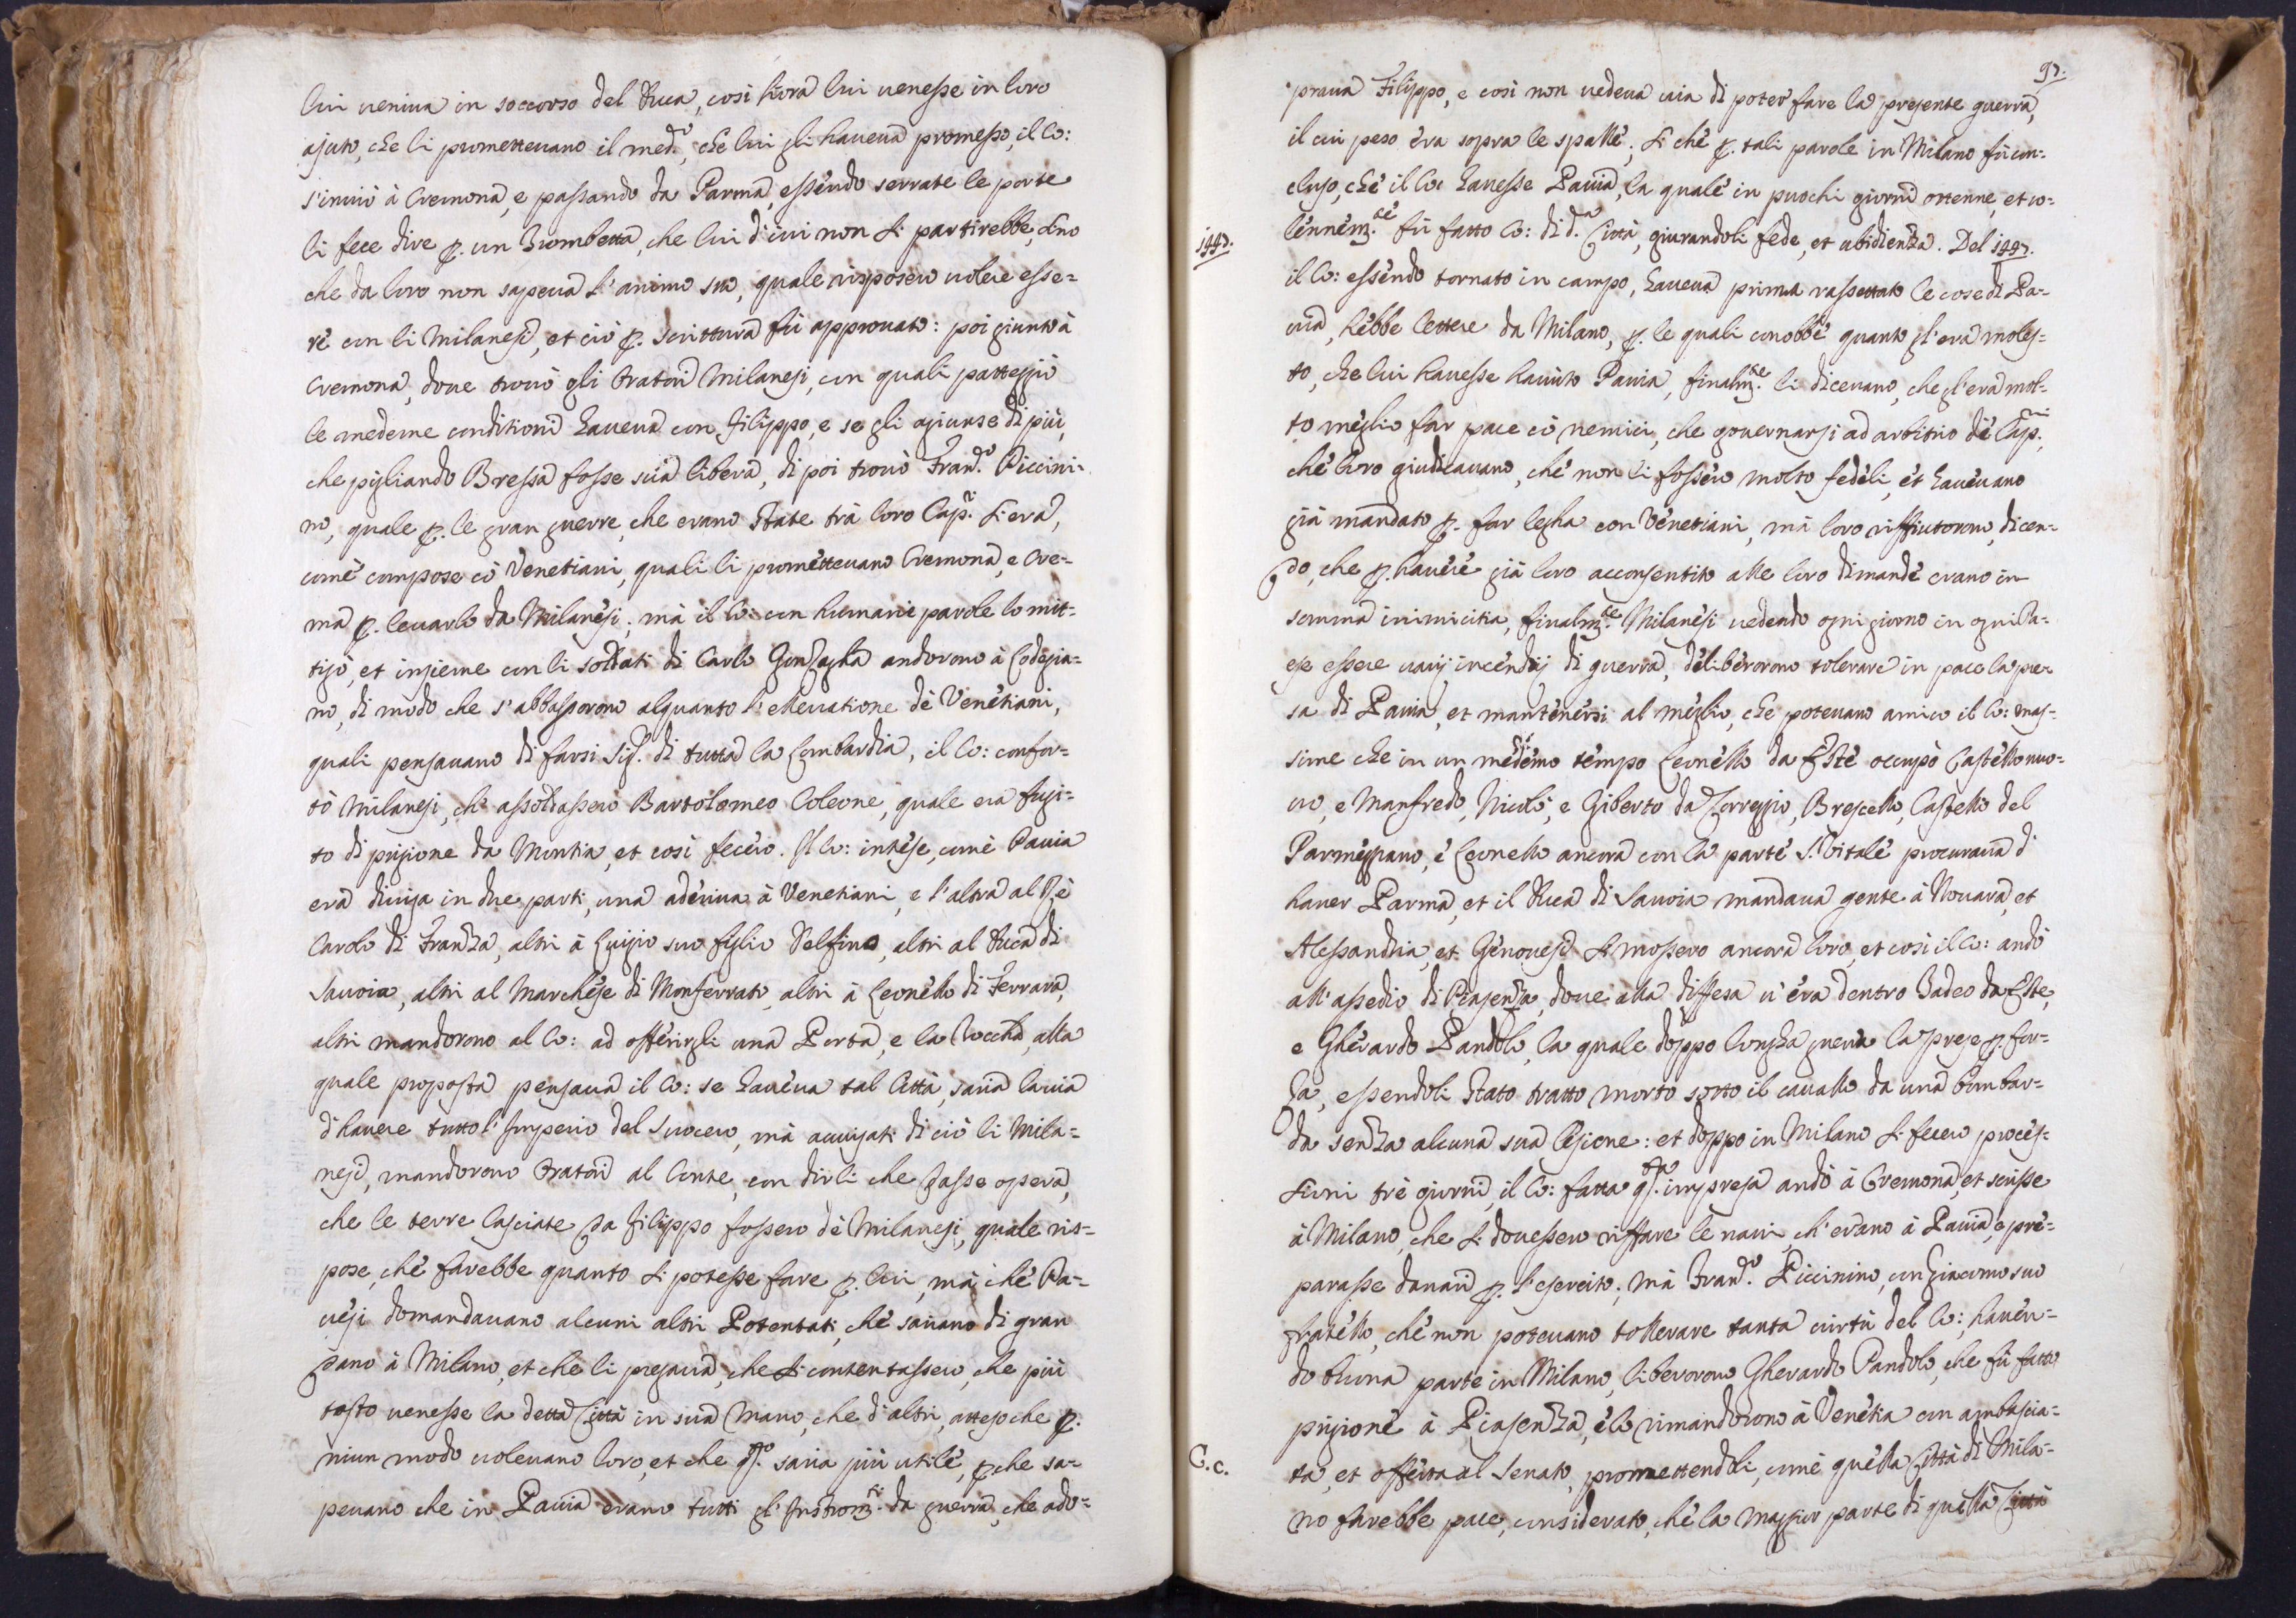 lui veniva in soccorso del Duca, così hora lui venesse in loro
ajuto, che li promettevano il med.º, che lui gli haveva promesso, il Co:
s'inviò à Cremona, e passando da Parma, essendo serrate le porte
li fece dire p. un Trombetta, che lui d'ivi non si partirebbe, sino
che da loro non sapeva l'animo suo, quale risposero volere esse=
re con li Milanesi, et ciò p. scrittura fù approvato: poi giunto à
Cremona, dove trovò gli Oratori Milanesi, con quali patteggiò
le medeme conditioni haveva con Filippo, e se gli agiunse di più,
che pigliando Bressa fosse sua libera, di poi trovò Fran.º Piccini=
no, quale p. le gran guerre, che erano state trà loro Cap.ni si era,
come compose cò Venetiani, quali li promettevano Cremona, e Cre=
ma p. levarlo da Milanesi; mà il Co: con humane parole lo mit=
tigò, et insieme con li soldati di Carlo Gonzagha andorono à Codegia=
no, di modo che s'abbassorono alquanto l'ellevatione dè Venetiani,
quali pensavano di farsi Sig.ri di tutta la Lombardia, il Co: confor=
tò Milanesi, ch'assoldassero Bartolomeo Coleone, quale era fugi=
to di prigione da Montia, et così fecero. Il Co: intese, come Pavia
era divisa in due parti, una aderiva à Venetiani, e l'altra al Rè
Carolo di Franza, altri à Luigio suo figlio Delfino, altri al Duca di
Savoia, altri al Marchese di Monferrato, altri à Leonello di Ferrara,
altri mandorono al Co: ad offerirgli una Porta, e la Roccha, alla
quale proposta pensava il Co: se haveva tal Città, saria la via
d'havere tutto l'Imperio del Suocero, mà avvisati di ciò li Mila=
nesi, mandorono Oratori al Conte, con dirli che fasse opera,
che le terre lasciate da Filippo fossero dè Milanesi, quale ris=
pose, che farebbe quanto si potesse fare p. lui, mà che Pa=
vesi domandavano alcuni altri Potentati, che sariano di gran
dano à Milano, et che li pregava, che si contentassero, che più
tosto venesse la detta Città in sua mano, che d'altri, atteso che p.
niun modo volevano loro, et che q.to saria più utile, p.che sa=
pevano che in Pavia erano tutti gl'Instrom.ti da guerra, che ado=
97.
prava Filippo, e così non vedeva via di poter fare la presente guerra,
il cui peso era sopra le spalle; si che p. tali parole in Milano fù con=
cluso, che il Co: havesse Pavia, la quale in puochi giorni ottenne, et so=
lennem.te fù fatto Co: di d.a Città, giurandoli fede, et ubidienza. Del 1447.
1447.
il Co: essendo tornato in campo, haveva prima rassettato le cose di Pa=
via, hebbe lettere da Milano, p. le quali conobbe quanto gl'era moles=
to, che lui havesse havuto Pavia, finalm.te li dicevano, che gl'era mol=
to meglio far pace cò nemici, che governarsi ad arbitrio dè Cap.ni
che loro giudicavano, che non li fossero molto fedeli, et havevano
già mandato p. far legha con Venetiani, mà loro riffiutorono, dicen=
do, che p. havere già loro acconsentito alle loro dimande erano in
somma inimicitia, finalm.te Milanesi vedendo ogni giorno in ogni Pa=
ese essere varij incendij di guerra, deliberorono tolerare in pace la pre=
sa di Pavia, et mantenersi al meglio, che potevano amico il Co: mas=
sime che in un medemo tempo Leonello da Este occupò Castello nuo=
vo, e Manfredo, Nicolò, e Giberto da Correggio, Brescello, Castello del
Parmeggiano, e Leonello ancora con la parte S. Vitale procurava di
haver Parma, et il Duca di Savoia mandava gente à Novara, et
Alessandria, et Genovesi si mossero ancora loro, et così il Co: andò
all'assedio di Piasenza, dove alla diffesa v'era dentro Tadeo da Este,
e Gherardo Pandolo, la quale doppo longha guerra la prese p. for=
za, essendoli stato tratto morto sotto il cavallo da una bombar=
da senza alcuna sua lesione: et doppo in Milano si fecero proces=
sioni trè giorni, il Co: fatta q.ta impresa andò à Cremona, et scrisse
à Milano, che si dovessero riffare le navi, ch'erano à Pavia, e pre=
parasse danari p. l'esercito; mà Fran.º Piccinino, con Giacomo suo
fratello, che non potevano tollerare tanta virtù del Co:, haven=
do buona parte in Milano, liberorono Gherardo Pandolo, che fù fatto
prigione à Piasenza, e lo rimandorono à Venetia con ambascia=
C. c.
ta, et offerta al Senato, promettendoli, come quella Città di Mila=
no farebbe pace, considerato, che la maggior parte di quella Città